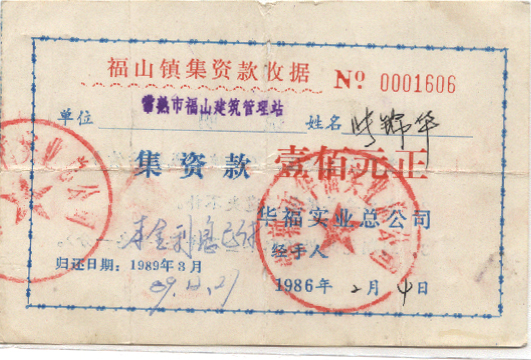 福山镇集资款收据 Nº 0001606
单位 常熟市福山建筑管理站 姓名
集资款 壹佰元正
华福实业总公司
本金利息已付
经手人
归还日期：1989年3月
1986年2月4日